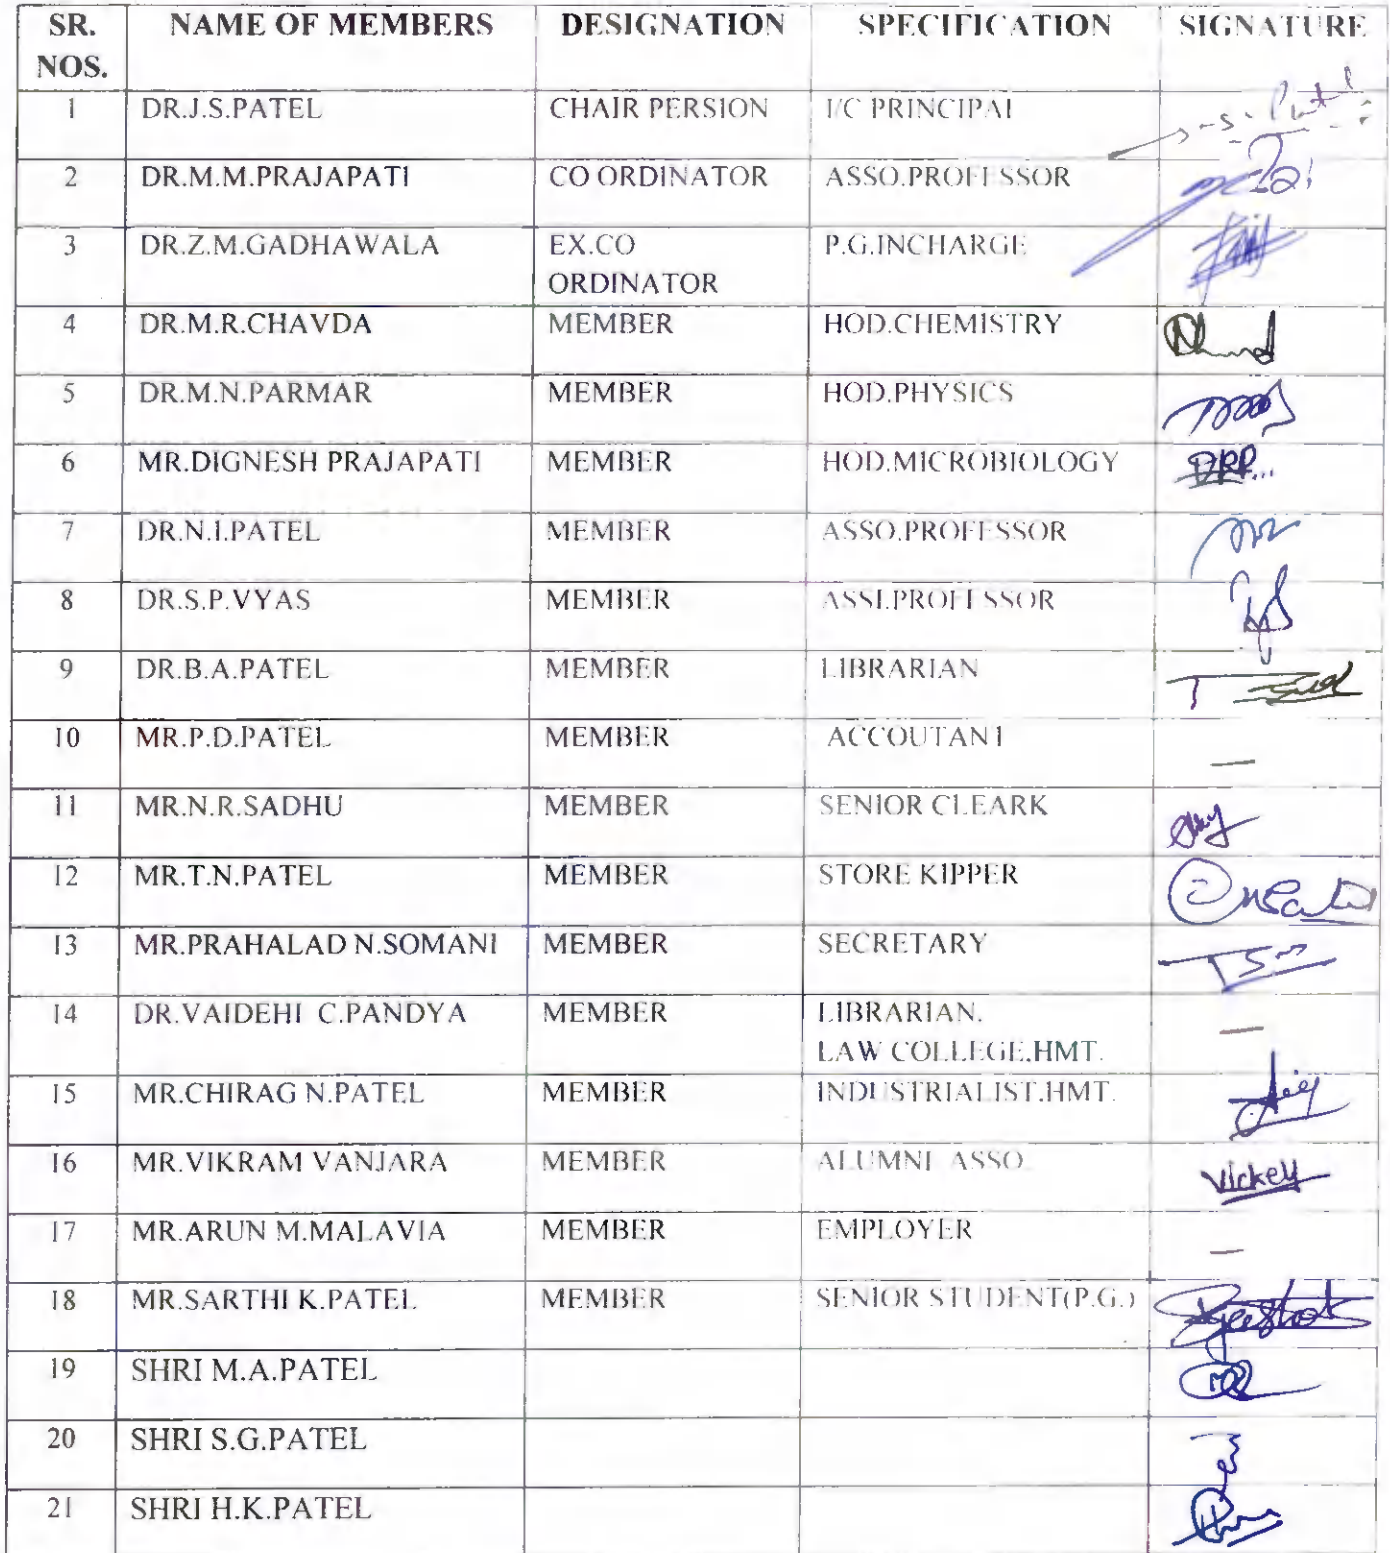 SR. NOS. NAME OF MEMBERS DESIGNATION SPECIFICATION SIGNATURE
1 DR.J.S.PATEL CHAIR PERSION I/C PRINCIPAL J-S. Patel
2 DR.M.M.PRAJAPATI CO ORDINATOR ASSO.PROFESSOR
3 DR.Z.M.GADHAWALA EX.CO ORDINATOR P.G.INCHARGE
4 DR.M.R.CHAVDA MEMBER HOD.CHEMISTRY
5 DR.M.N.PARMAR MEMBER HOD.PHYSICS
6 MR.DIGNESH PRAJAPATI MEMBER HOD.MICROBIOLOGY DRP...
7 DR.N.I.PATEL MEMBER ASSO.PROFESSOR
8 DR.S.P.VYAS MEMBER ASSI.PROFESSOR
9 DR.B.A.PATEL MEMBER LIBRARIAN
10 MR.P.D.PATEL MEMBER ACCOUTANT —
11 MR.N.R.SADHU MEMBER SENIOR CLEARK
12 MR.T.N.PATEL MEMBER STORE KIPPER
13 MR.PRAHALAD N.SOMANI MEMBER SECRETARY
14 DR.VAIDEHI C.PANDYA MEMBER LIBRARIAN. LAW COLLEGE,HMT. —
15 MR.CHIRAG N.PATEL MEMBER INDUSTRIALIST.HMT.
16 MR.VIKRAM VANJARA MEMBER ALUMNI ASSO Vickey
17 MR.ARUN M.MALAVIA MEMBER EMPLOYER —
18 MR.SARTHI K.PATEL MEMBER SENIOR STUDENT(P.G.)
19 SHRI M.A.PATEL
20 SHRI S.G.PATEL
21 SHRI H.K.PATEL